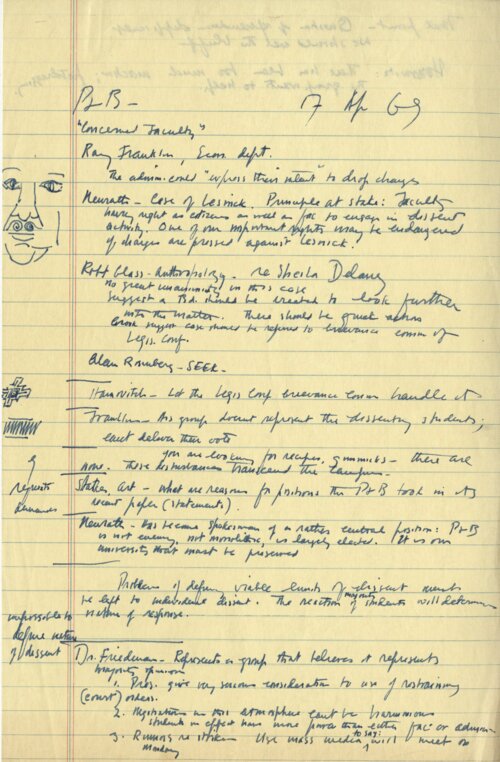 P&B - 17 Ap 69
"Concerned Faculty"
Ray Franklin, Econ. dept.
The admin. could "express their intent" to drop charges
Neurath - Case of Lesnick. Principle at stake: Faculty
having right as citizens as well as fac to engage in dissent
activity. One of our important rights may be endangered
if charges are pressed against Lesnick.
Robt Glass - Anthropology - re Sheila Delany
no great unanimity in this case
Suggest a Bd. should be created to look further
into the matter. There should be quick action
suggest case should be referred to Grievance Comm of
Legis. Conf.
Alan - SEEK -
- Let the Legis Conf Grievance Comm handle it
Franklin - His group doesn't represent the dissenting students;
can't deliver their vote
you are looking for recipes, gimmicks - there are
none. These disturbances transcend the campus.
requests
demands
States, Art - what are reasons for positions the P&B took in its
recent paper (statements).
Neurath - Has become spokesman of a rather central position: P&B
is not enemy, not monolithic, is largely elected. It is our
university that must be preserved
Problem of defining viable limits of dissent
be left to individual dissent. The reaction of majority students will determine
nature of response.
impossible to
define nature
of dissent
Dr. Friedman - Represents a group that believes it represents
majority opinion
1. Pres. give very serious consideration to use of restraining
(court) orders.
2. Negotiations in this atmosphere can't be harmonious
students in effect have more power than either fac or admin.
3. Rumors re strike. Use mass media to say: will meet on
Monday